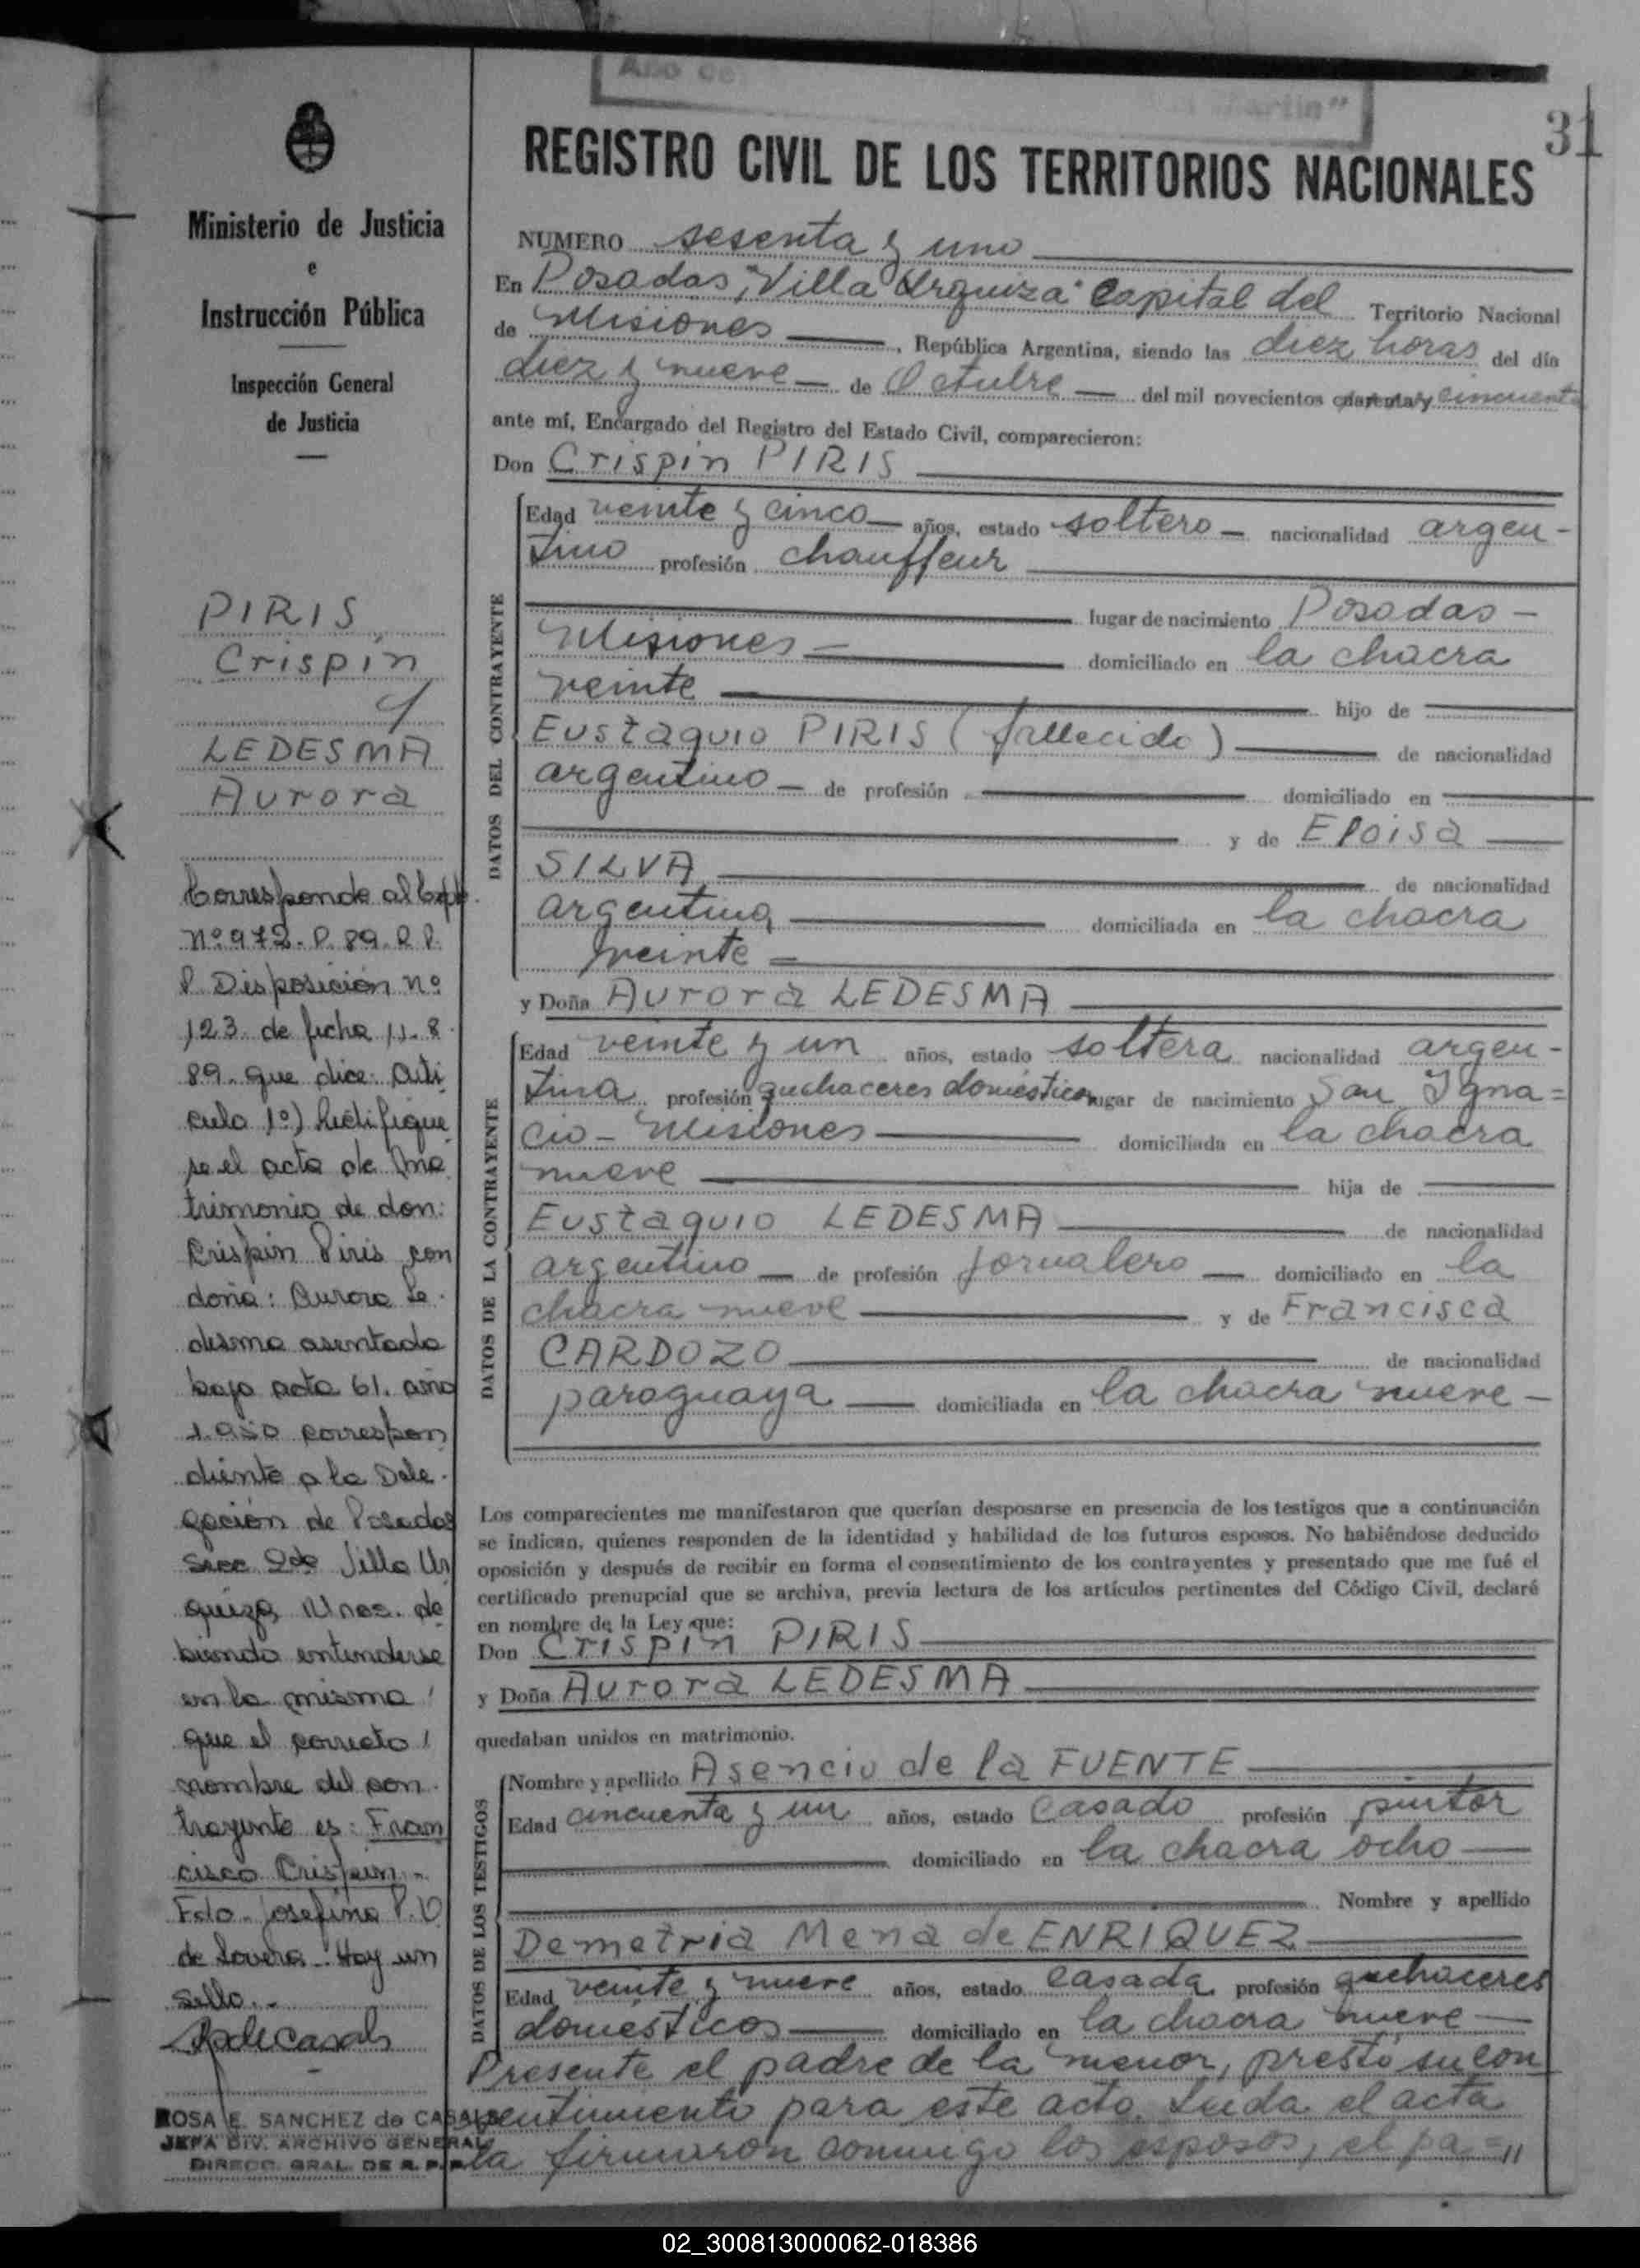 Año de
Martin"
31
REGISTRO CIVIL DE LOS TERRITORIOS NACIONALES
Ministerio de Justicia
e
Instrucción Pública
Inspección General
de Justicia
PIRIS,
Crispin
y
LEDESMA
Aurora
Corresponde al Expte.
Nº 972. P. 89. R P.
P. Disposición nº
123 de fecha 11.8.
89. que dice: Arti
culo 1º) Rectifique
se el acta de Ma
trimonio de don:
Crispin Piris con
doña: Aurora Le.
desma asentada
bajo acta 61. año
1.950 correspon
diente a la Dele.
gación de Posadas
Secc 2da Villa Ur
quiza, Mnes. de
biendo entenderse
en la misma
que el correcto
nombre del con.
trayente es: Fran
cisco Crispin.-
Fdo. Josefina P. V
de Lovera. Hay un
sello.-
RdeCasals
ROSA E. SANCHEZ de CASALS
JEFA DIV. ARCHIVO GENERAL
DIRECC. GRAL. DE R. P. P.
NUMERO sesenta y uno
En Posadas, "Villa Urquiza" Capital del Territorio Nacional
de Misiones, República Argentina, siendo las diez horas del día
diez y nueve de Octubre del mil novecientos cuarenta y cincuenta
ante mí, Encargado del Registro del Estado Civil, comparecieron:
Don Crispin PIRIS
DATOS DEL CONTRAYENTE
Edad veinte y cinco años, estado soltero nacionalidad argen-
tino profesión chauffeur
lugar de nacimiento Posadas -
Misiones domiciliado en la chacra
veinte hijo de
Eustaquio PIRIS (fallecido) de nacionalidad
argentino de profesión domiciliado en
y de Eloisa
SILVA de nacionalidad
argentina domiciliada en la chacra
veinte
y Doña Aurora LEDESMA
DATOS DE LA CONTRAYENTE
Edad veinte y un años, estado soltera nacionalidad argen-
tina profesión quehaceres domésticos lugar de nacimiento San Igna=
cio - Misiones domiciliada en la chacra
nueve hija de
Eustaquio LEDESMA de nacionalidad
argentino de profesión jornalero domiciliado en la
chacra nueve y de Francisca
CARDOZO de nacionalidad
paraguaya domiciliada en la chacra nueve -
Los comparecientes me manifestaron que querían desposarse en presencia de los testigos que a continuación
se indican, quienes responden de la identidad y habilidad de los futuros esposos. No habiéndose deducido
oposición y después de recibir en forma el consentimiento de los contrayentes y presentado que me fué el
certificado prenupcial que se archiva, previa lectura de los artículos pertinentes del Código Civil, declaré
en nombre de la Ley que:
Don Crispin PIRIS
y Doña Aurora LEDESMA
quedaban unidos en matrimonio.
DATOS DE LOS TESTIGOS
Nombre y apellido Asencio de la FUENTE
Edad cincuenta y un años, estado casado profesión pintor
domiciliado en la chacra ocho
Nombre y apellido
Demetria Mena de ENRIQUEZ
Edad veinte y nueve años, estado casada profesión quehaceres
domésticos domiciliado en la chacra nueve
Presente el padre de la menor, prestó su con
sentimiento para este acto. Leída el acta
la firmaron conmigo los esposos, el pa="
02_300813000062-018386